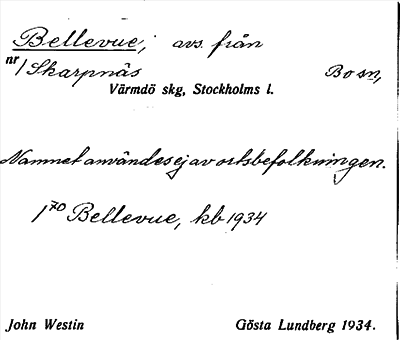 Bellevue, avs. från
nr 1 Skarpnäs Bo sn,
Värmdö skg, Stockholms l.
Namnet användes ej av ortsbefolkningen.
1 70 Bellevue, kb 1934
John Westin Gösta Lundberg 1934.